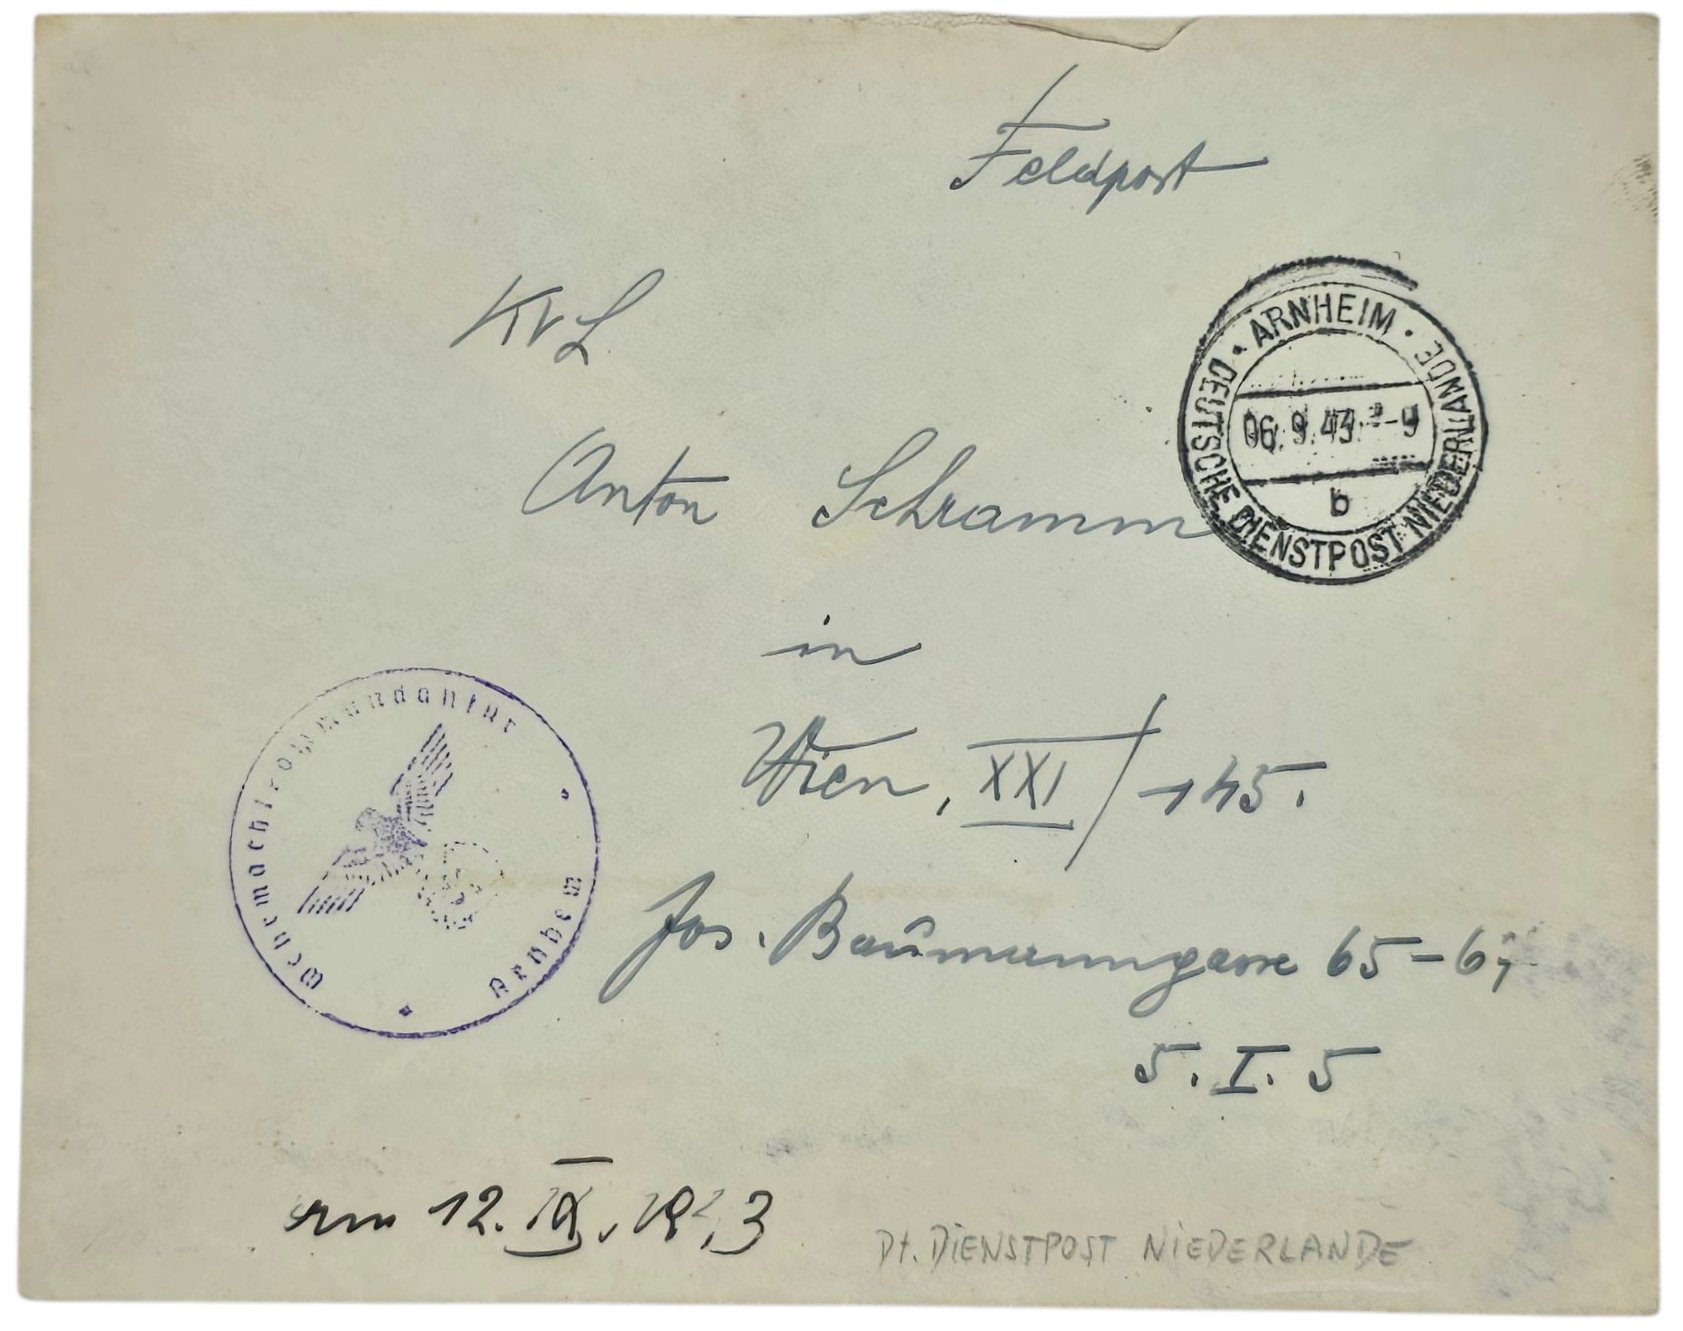 Feldpost
ARNHEIM
DEUTSCHE DIENSTPOST NIEDERLANDE
06.9.43.-9
b
Anton Schramm
in
Wien, XXI / 145.
Jos. Baumanngasse 65-67
5. I. 5
Wehrmachtkommandantur
Arnhem
12. IX. 1943
Dt. DIENSTPOST NIEDERLANDE